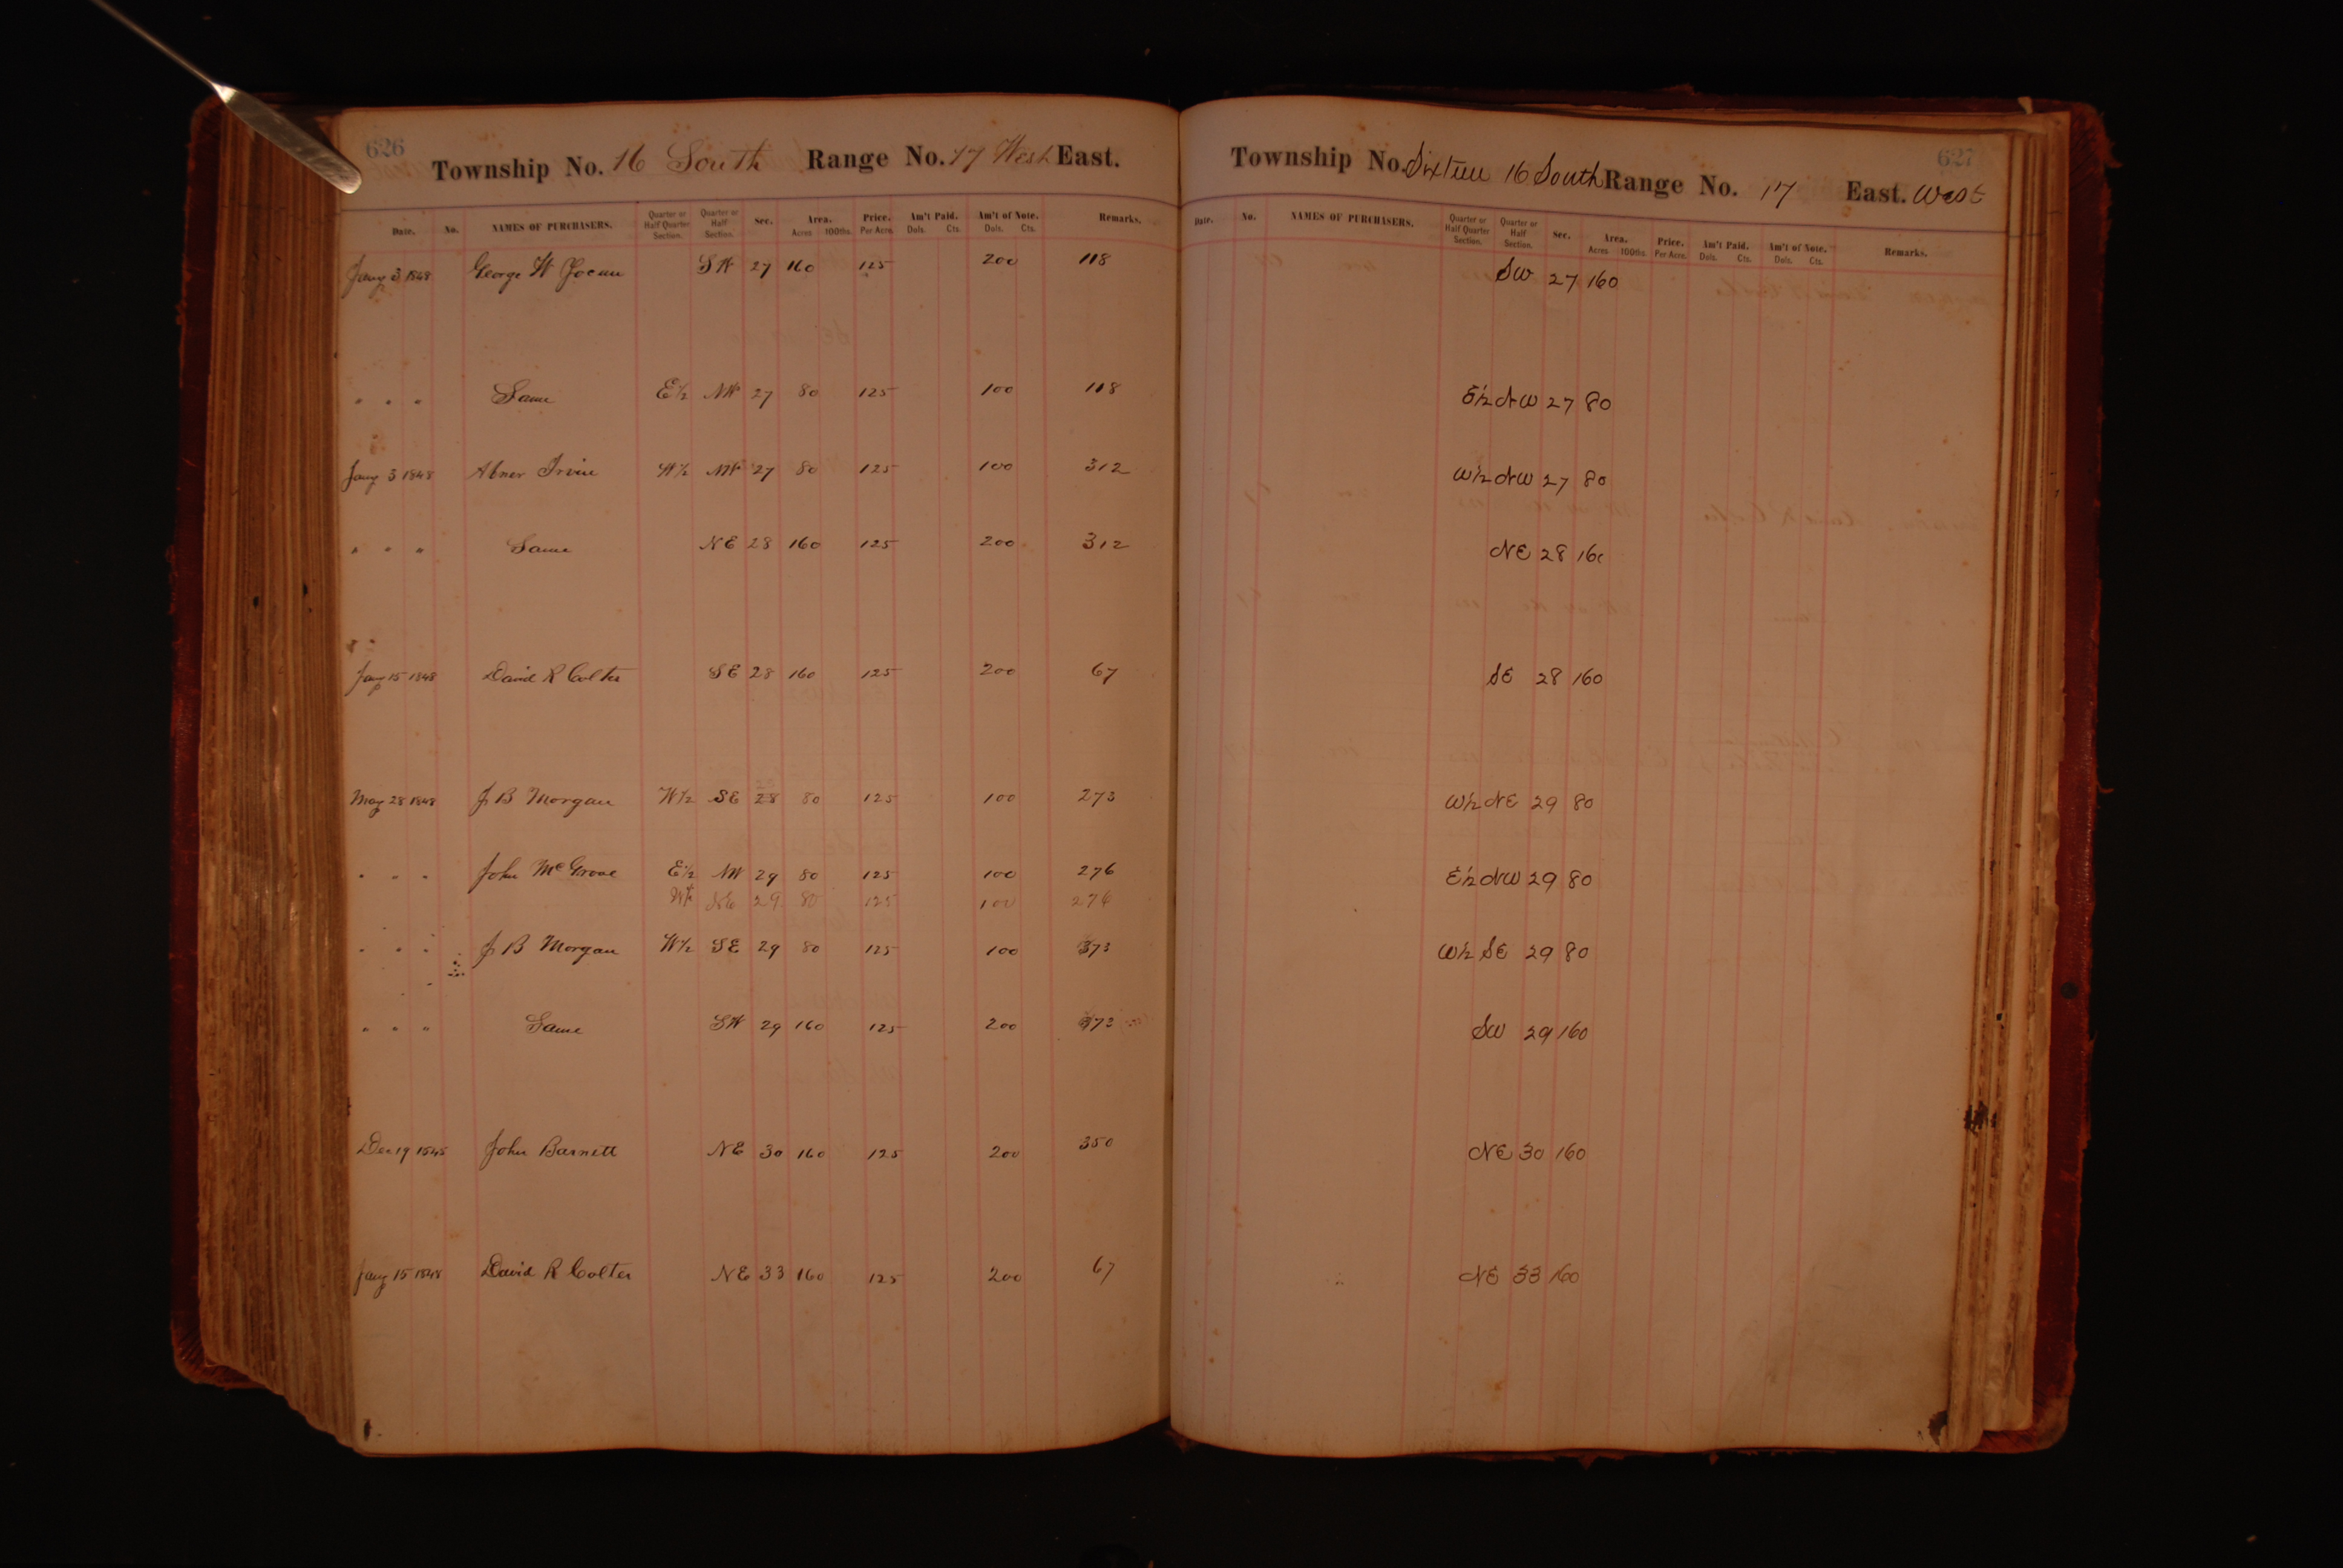 626
Township No. 16 South Range No. 17 West East.
Date. No. NAMES OF PURCHASERS. Quarter or Half Quarter Section. Quarter or Half Section. Sec. Area. Acres 100ths. Price. Per Acre. Am't Paid. Dols. Cts. Am't of Note. Dols. Cts. Remarks.
Jany 3 1848 George W SW 27 160 125 200 118
" " " Same E½ NW 27 80 125 100 118
Jany 3 1848 Abner Irvine W½ NW 27 80 125 100 312
" " " Same NE 28 160 125 200 312
Jany 15 1848 David R Colter SE 28 160 125 200 67
May 28 1848 J B Morgan W½ SE 28 80 125 100 273
" " " John McGrone E½ NW 29 80 125 100 276
W½ NE 29 80 125 100 276
" " " J B Morgan W½ SE 29 80 125 100 373
" " " Same SW 29 160 125 200 373
Dec 19 1845 John Barnett NE 30 160 125 200 350
Jany 15 1848 David R Colter NE 33 160 125 200 67
627
Township No. Sixteen 16 South Range No. 17 East. West
Date. No. NAMES OF PURCHASERS. Quarter or Half Quarter Section. Quarter or Half Section. Sec. Area. Acres 100ths. Price. Per Acre. Am't Paid. Dols. Cts. Am't of Note. Dols. Cts. Remarks.
SW 27 160
E½ NW 27 80
W½ NW 27 80
NE 28 160
SE 28 160
W½ NE 29 80
E½ NW 29 80
W½ SE 29 80
SW 29 160
NE 30 160
NE 33 160